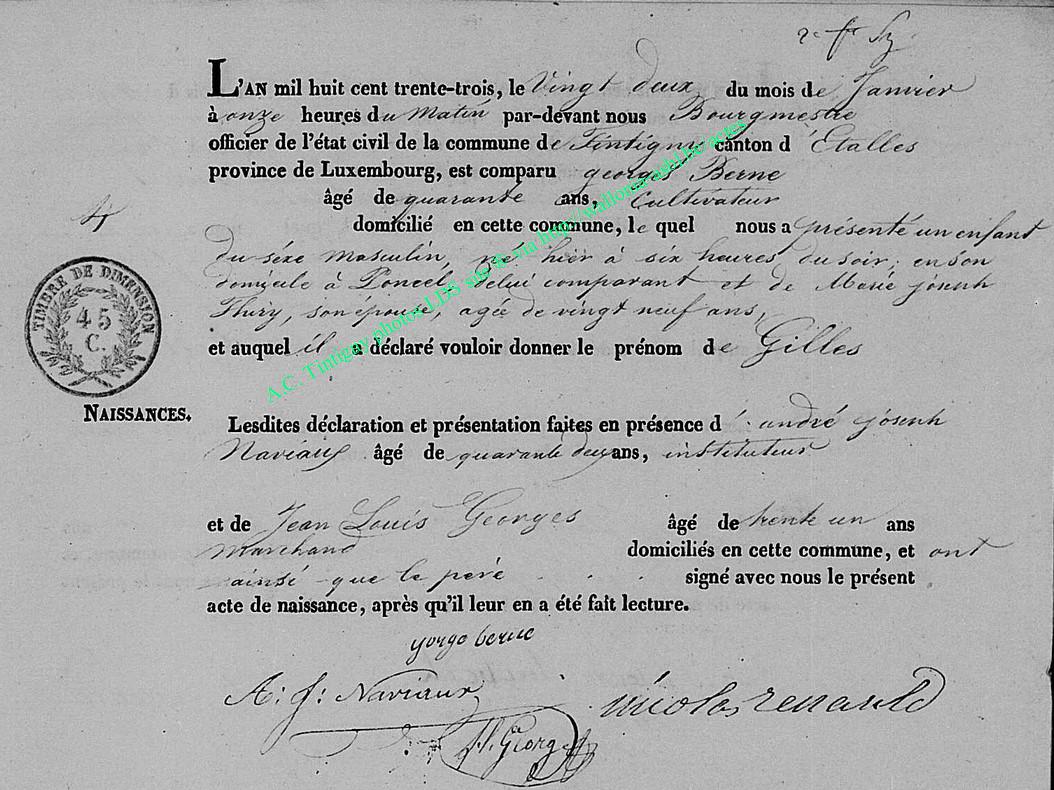 L'AN mil huit cent trente-trois, le Vingt deux du mois de Janvier
à onze heures du Matin par-devant nous Bourgmestre
officier de l'état civil de la commune de Tintigny canton d'Etalles
province de Luxembourg, est comparu georges Berne
âgé de quarante ans, Cultivateur
domicilié en cette commune, le quel nous a présenté un enfant
4
du séxe masculin, né hier à six heures du soir; en son
domicile à Poncel, delui comparant et de Marie joseph
Thiry, son épouse, agée de vingt neuf ans,
et auquel il a déclaré vouloir donner le prénom de Gilles
TIMBRE DE DIMENSION
45
C.
A.C. Tintigny photos LDS
NAISSANCES.
Lesdites déclaration et présentation faites en présence d' andré joseph
Naviaux âgé de quarante deux ans, instituteur
et de Jean Louis Georges âgé de trente un ans
Marchand domiciliés en cette commune, et ont
ainsi que le pere signé avec nous le présent
acte de naissance, après qu'il leur en a été fait lecture.
yorge berne
A: J: Naviaux
nicolas renauld
Georges